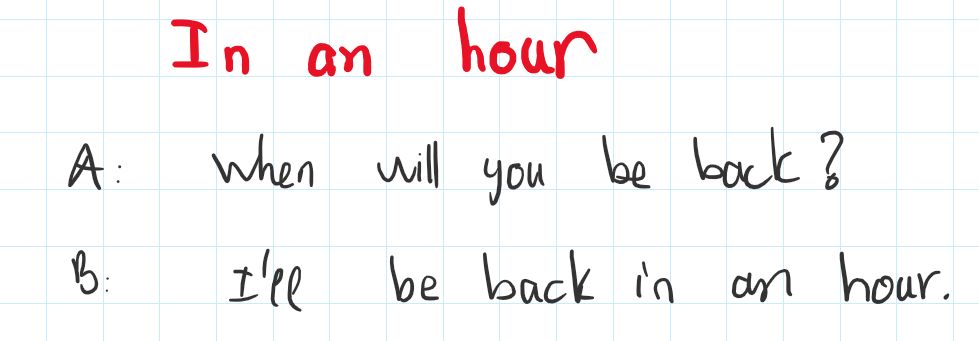 In an hour
A: When will you be back?
B: I'll be back in an hour.